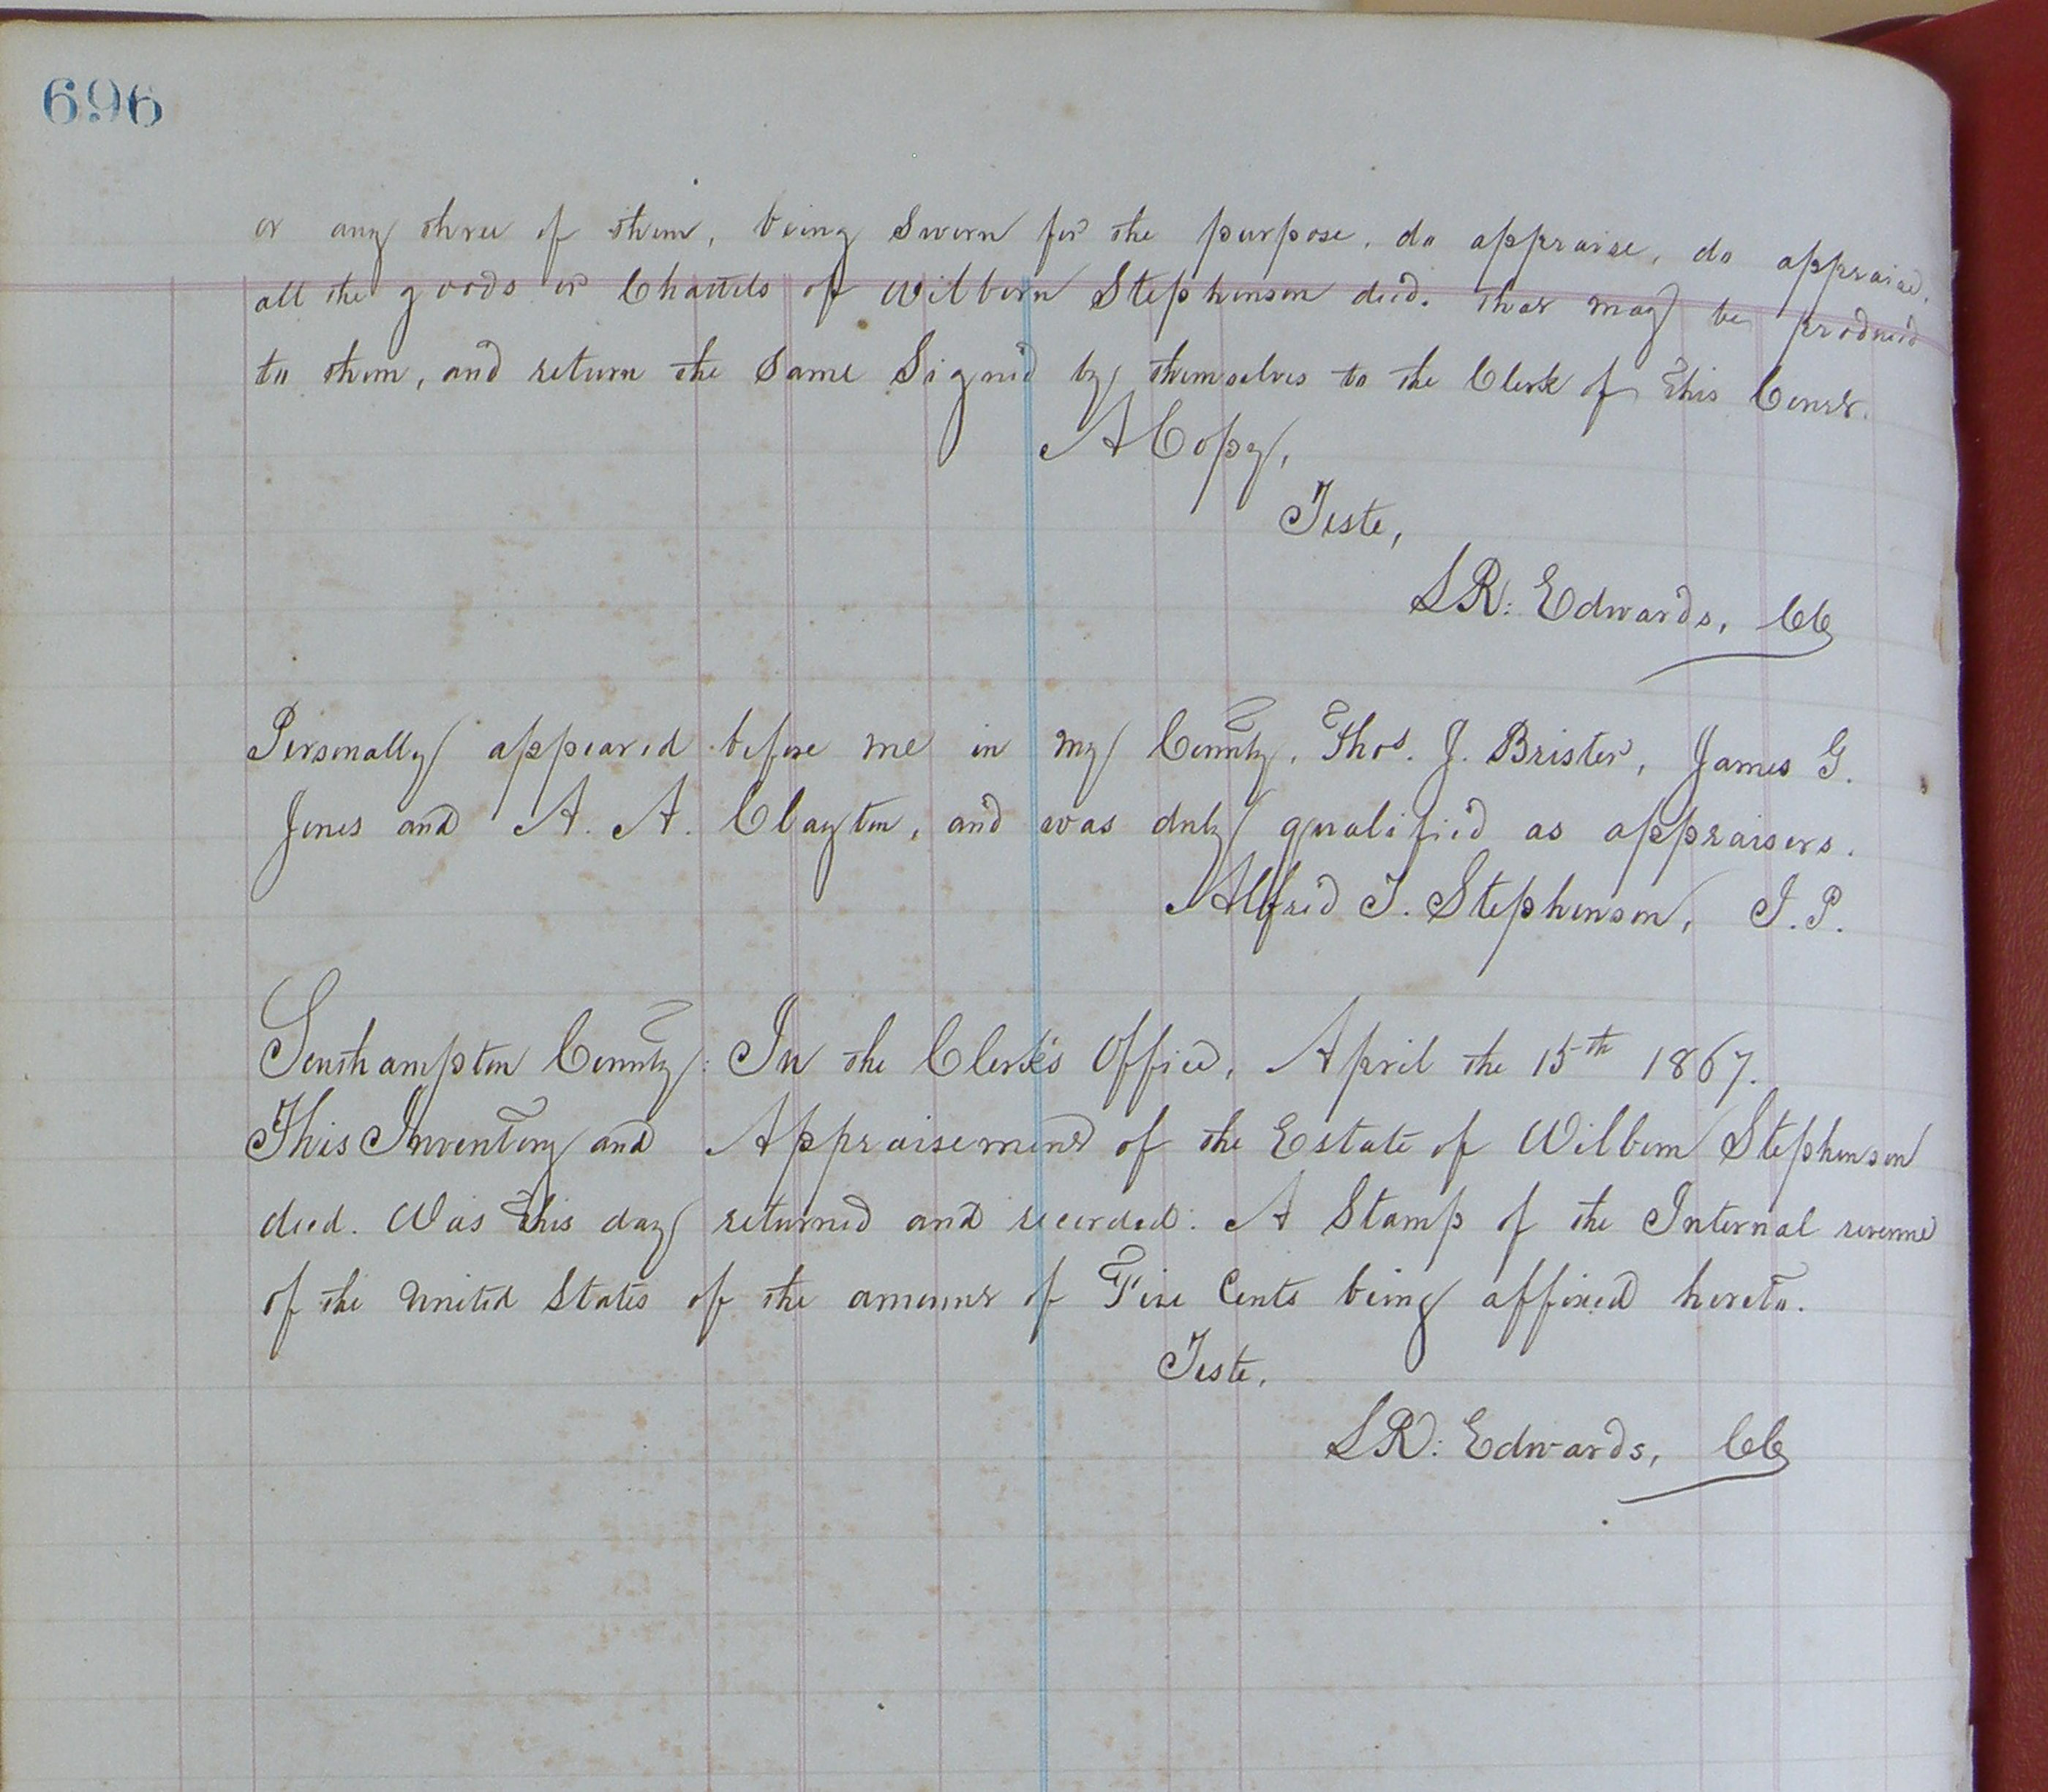 696
or any three of them, being Sworn for the purpose, do appraise, do appraise,
all the goods or Chattels of Wilborn Stephenson decd. that may be produced
to them, and return the Same Signed by themselves to the Clerk of this Court.
A Copy,
Teste,
LR: Edwards, CC
Personally appeared before me in my County, Thos. J. Brister, James G.
Jones and A. A. Clayton, and was duly qualified as appraisers.
Alfred J. Stephenson, J.P.
Southampton County: In the Clerk's Office, April the 15th 1867.
This Inventory and Appraisement of the Estate of Wilborn Stephenson
decd. Was this day returned and recorded: A Stamp of the Internal revenue
of the United States of the amount of Five Cents being affixed hereto.
Teste,
LR: Edwards, CC